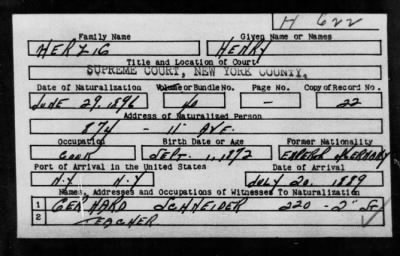 H 622
Family Name Given Name or Names
HERZIG HENRY
Title and Location of Court
SUPREME COURT, NEW YORK COUNTY.
Date of Naturalization Volume or Bundle No. Page No. Copy of Record No.
JUNE 29, 1896 — 22
Address of Naturalized Person
874 - 11" AVE.
Occupation Birth Date or Age Former Nationality
COOK SEPT. 1, 1872 GERMANY
Port of Arrival in the United States Date of Arrival
N.Y. N.Y. JULY 20, 1889
Names, Addresses and Occupations of Witnesses To Naturalization
1 GERHARD SCHNEIDER 220 - 2" ST
2 TEACHER